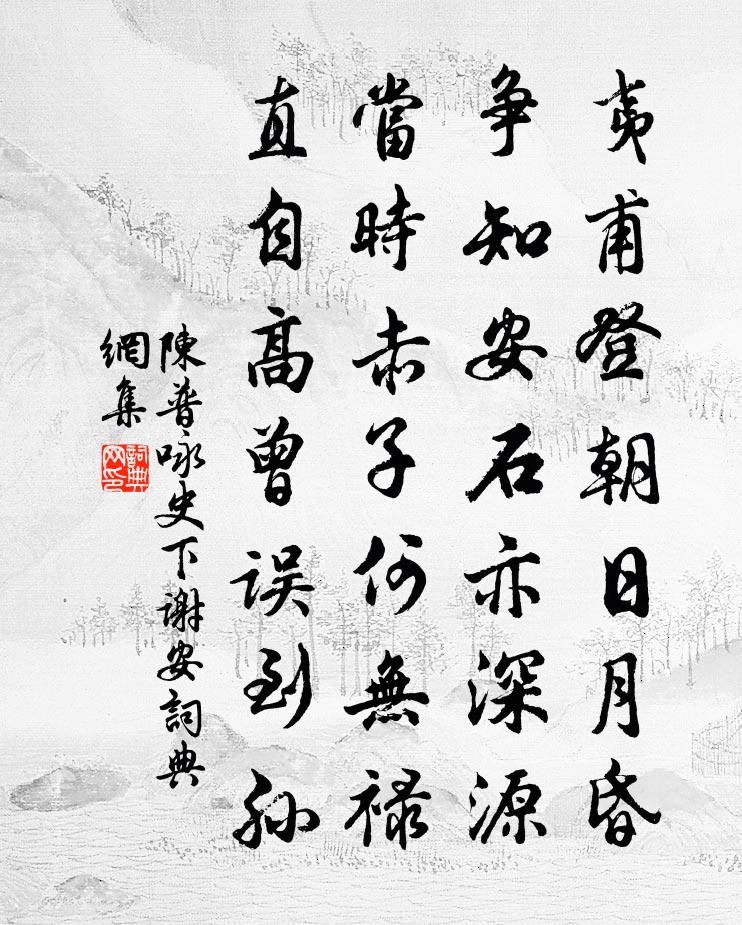 夷甫登朝日月昏
争知安石亦深源
當時赤子何無禄
直自高曾误到孙
陳普咏史下谢安詞典
網集
詞典
网印